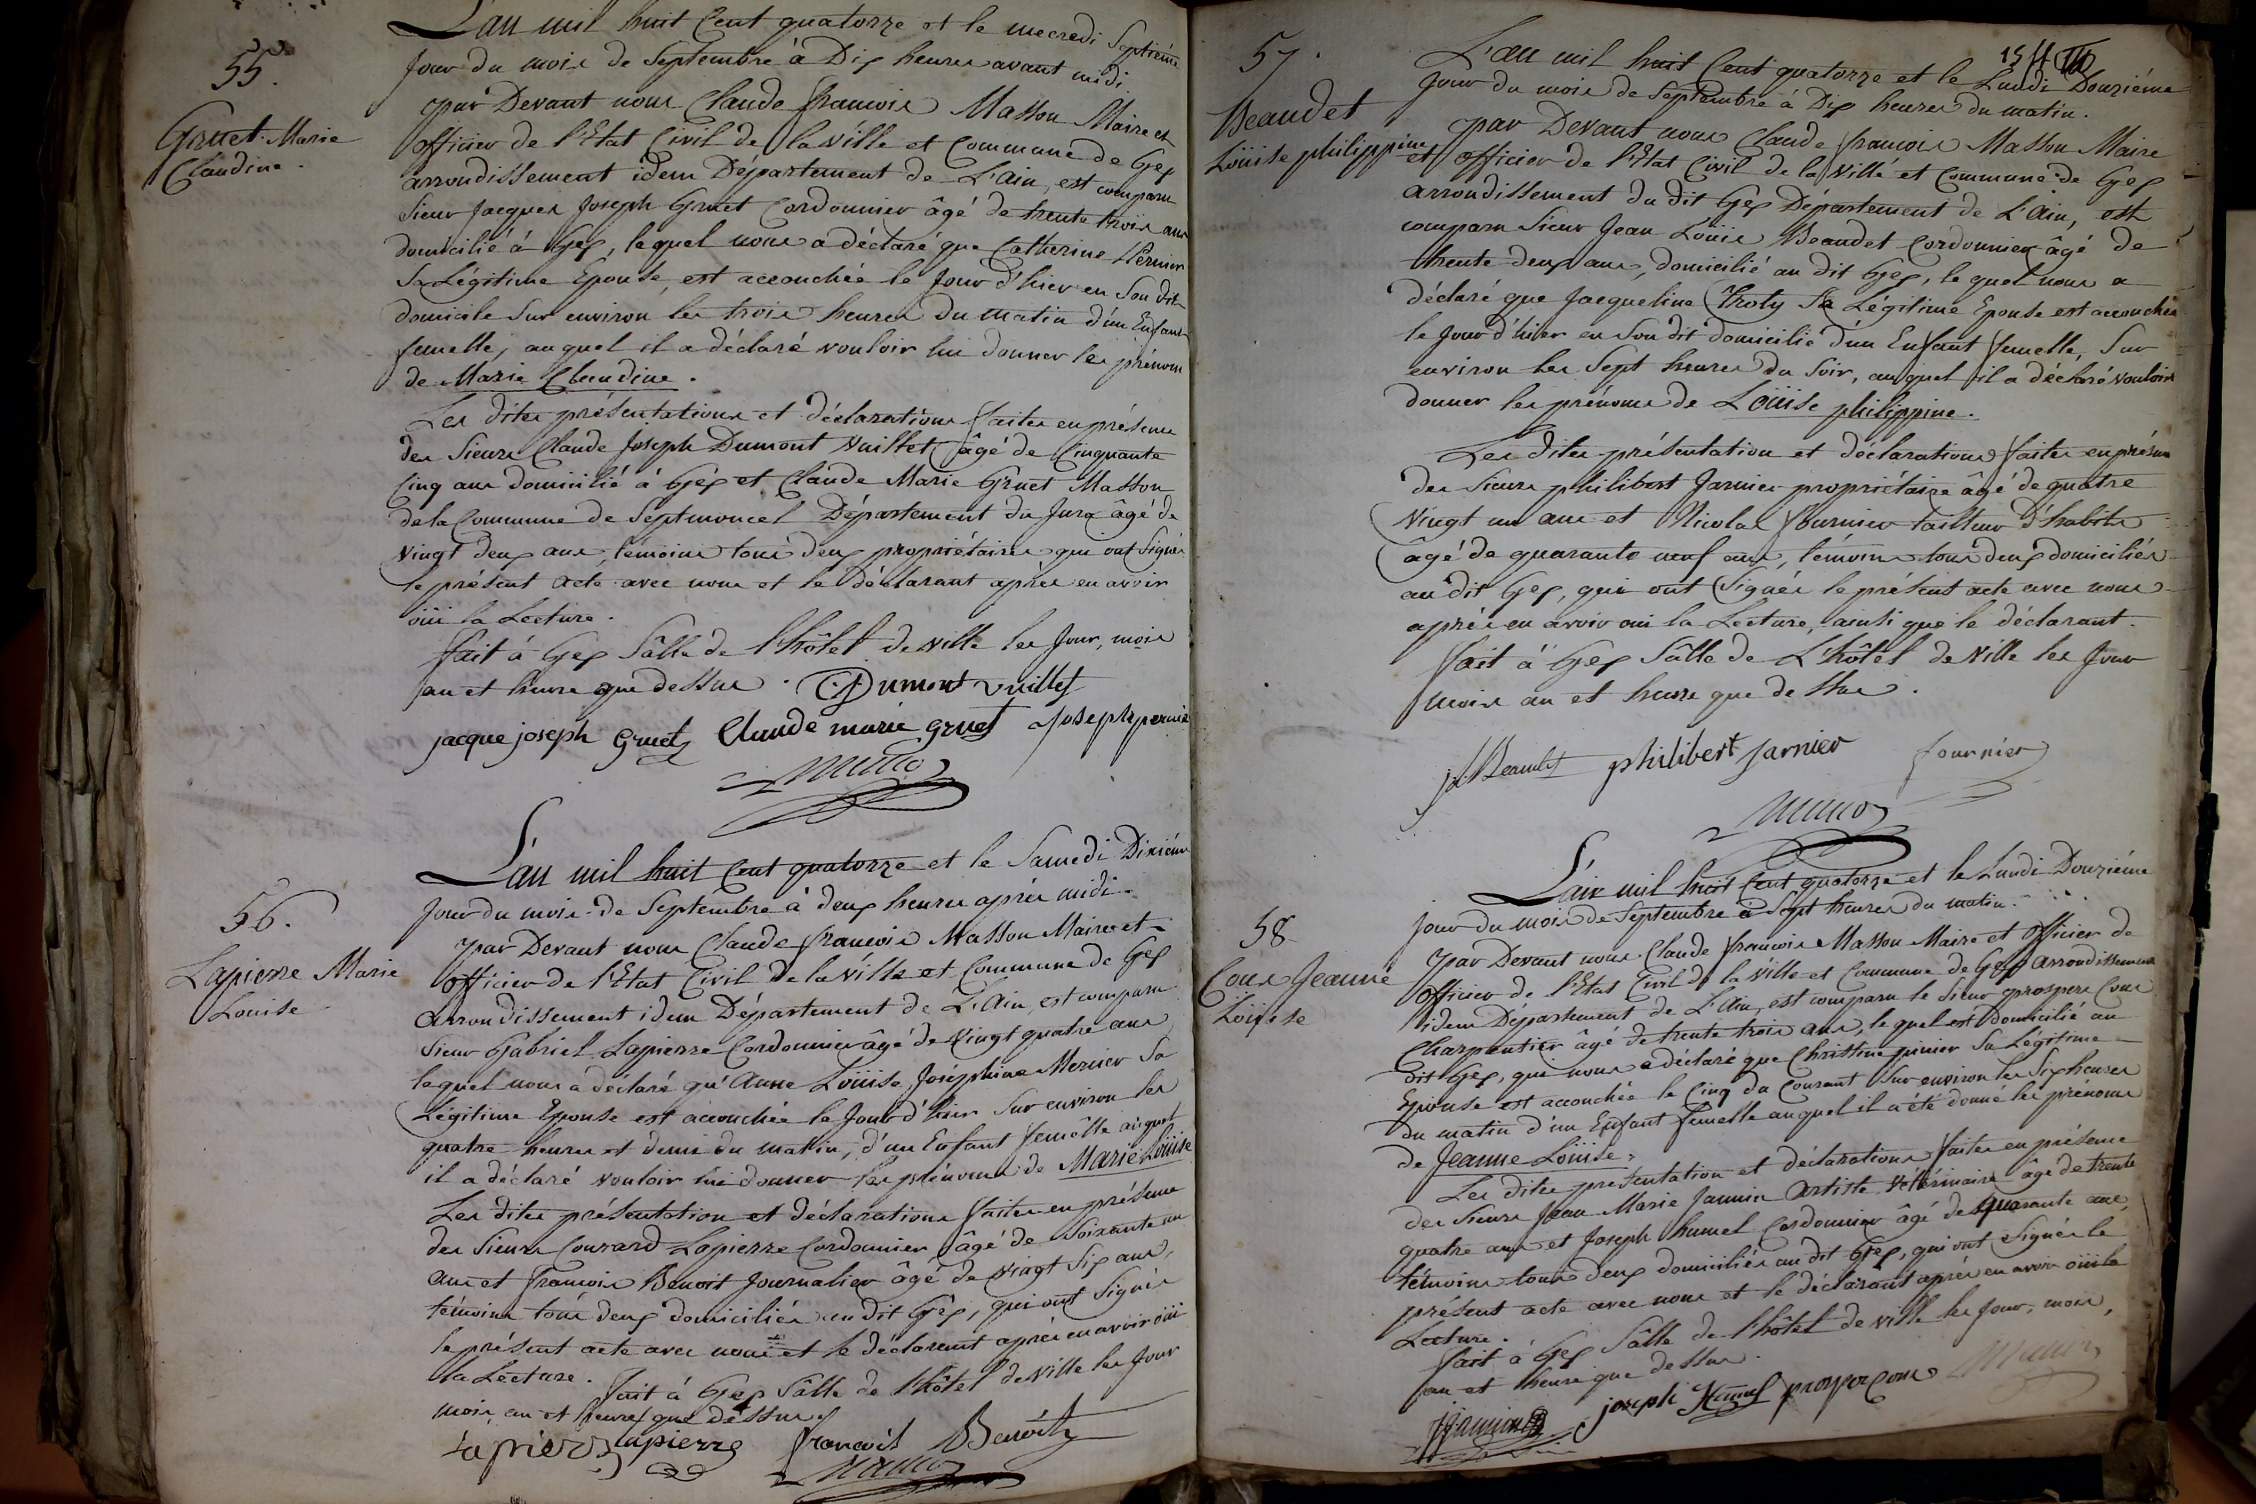 55.
Gruet Marie
Claudine.
L'an mil huit Cent quatorze et le mecredi Septiéme
Jour du mois de Septembre à Dix heures avant midi.
par Devant nous Claude francois Masson Maire et
officier de l'Etat Civil de la Ville et Commune de Gex
arrondissement idem Département de L'Ain, est comparu
Sieur Jacques Joseph Gruet Cordonnier âgé de trente trois ans
domicilié à Gex, lequel nous a déclaré que Catherine Pernier
Sa Légitime Epouse, est accouchée le Jour d'hier en Son dit
domicile Sur environ les trois heures du matin d'un Enfant
femelle, auquel il a déclaré vouloir lui donner les prénom
de Marie Claudine.
Les dites présentations et déclarations faites en présence
des Sieurs Claude Joseph Dumont Vuillet, âgé de Cinquante
Cinq ans domicilié à Gex et Claude Marie Gruet Masson
de la Commune de Septmoncel Département du Jura âgé de
vingt deux ans, témoins tous deux propriétaires qui ont Signés
le présent acte avec nous et le déclarant après en avoir
oüi la Lecture.
fait à Gex Sâlle de l'hôtel de ville les Jour, mois
an et heure que dessus. Dumont vuillet
jacque joseph Gruet Claude marie gruet Joseph pernie
56.
Lapierre Marie
Louise
L'an mil huit Cent quatorze et le Samedi Dixiéme
Jour du mois de Septembre à deux heures après midi.
par Devant nous Claude francois Masson Maire et
officier de l'Etat Civil de la Ville et Commune de Gex
arrondissement idem Département de L'Ain, est comparu
Sieur Gabriel Lapierre Cordonnier âgé de Vingt quatre ans
lequel nous a déclaré qu'Anne Loüise Joséphine Mercier Sa
Légitime Epouse est accouchée le Jour d'hier Sur environ les
quatre heures et demie du matin, d'un Enfant femelle auquel
il a déclaré vouloir lui donner les prénoms de Marie Loüise
Les dites présentation et déclarations faites en présence
des Sieurs Conrard Lapierre Cordonnier âgé de Soixante un
ans et francois Benoit Journalier âgé de vingt Six ans,
témoins tous deux domiciliés au dit Gex, qui ont Signés
le présent acte avec nous et le déclarant après en avoir oüi
la Lecture.
fait à Gex Sâlle de l'hôtel de ville les Jour
mois, an et heure que dessus.
Lapierre Lapierre francois Benoit
57.
Beaudet
Loüise philippine
L'an mil huit Cent quatorze et le Lundi Douziéme
Jour du mois de Septembre à Dix heures du matin.
par Devant nous Claude francois Masson Maire
et officier de l'Etat Civil de la Ville et Commune de Gex
arrondissement du dit Gex Département de L'Ain, est
comparu Sieur Jean Loüis Beaudet Cordonnier âgé de
trente deux ans, domicilié au dit Gex, lequel nous a
déclaré que Jacqueline Sa Légitime Epouse est accouchée
le Jour d'hier en Son dit domicilié d'un Enfant femelle, Sur
environ les Sept heures du Soir, auquel il a déclaré vouloir
donner les prénoms de Loüise philippine.
Les dites présentation et déclarations faites en présence
des Sieurs philibert Jarnier propriétaire âgé de quatre
Vingt un ans et Nicolas fournier tailleur d'habits
âgé de quarante neuf ans, témoins tous deux domiciliés
au dit Gex, qui ont Signés le présent acte avec nous
après en avoir oui la Lecture, ainsi que le déclarant.
fait à Gex Sâlle de L'hôtel de Ville les Jour
mois an et heure que dessus.
philibert jarnier fournier
58
Cour Jeanne
Loüise
L'an mil huit Cent quatorze et le Lundi Douziéme
Jour du mois de Septembre à Sept heures du matin.
par Devant nous Claude francois Masson Maire et officier de
officier de l'Etat Civil de la Ville et Commune de Gex arrondissement
idem Département de L'Ain, est comparu le Sieur prospere Cour
Charpentier âgé de trente trois ans, lequel est domicilié au
dit Gex, qui nous a déclaré que Christine pinier Sa Légitime
Epouse est accouchée le Cinq du Courant Sur environ les Six heures
du matin d'un Enfant femelle auquel il a été donné les prénoms
de Jeanne Loüise.
Les dites présentation et déclarations faites en présence
des Sieurs Jean Marie Janmin Artiste Vétérinaire âgé de trente
quatre ans et Joseph humel Cordonnier âgé de quarante ans,
témoins tous deux domiciliés au dit Gex, qui ont Signés le
présent acte avec nous et le déclarant après en avoir oüi la
Lecture.
fait à Gex Sâlle de l'hôtel de ville les Jour, mois,
an et heure que dessus.
joseph prosper Cour